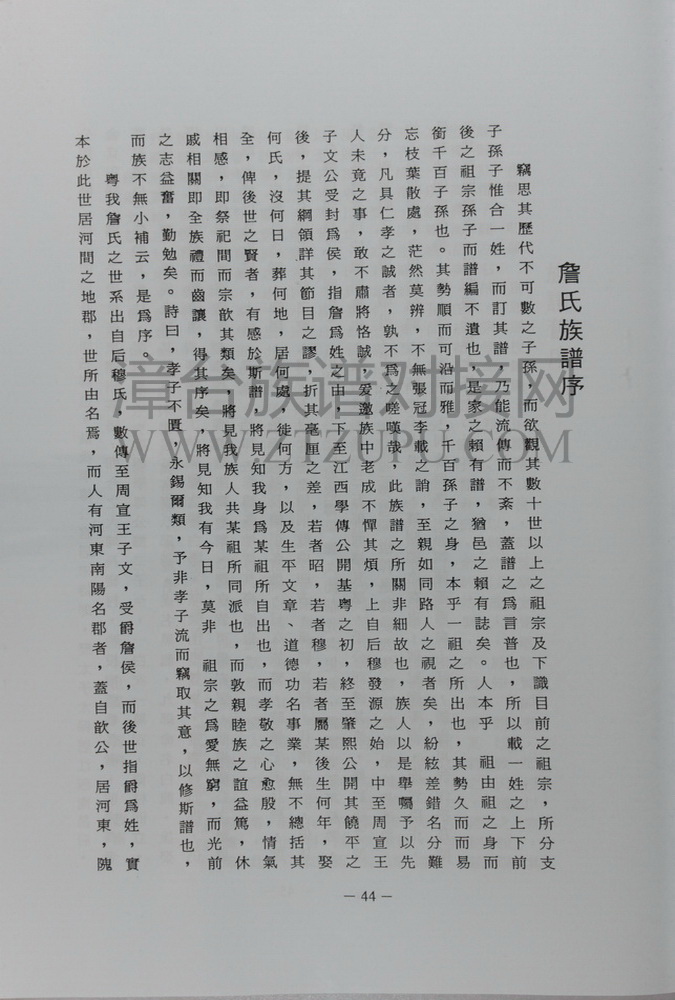 詹氏族譜序
竊思其歷代不可數之子孫，而欲觀其數十世以上之祖宗及下識目前之祖宗，所分支
子孫子惟合一姓，而訂其譜，乃能流傳而不紊，蓋譜之為言普也，所以載一姓之上下前
後之祖宗孫子而譜編不遺也，是家之賴有譜，猶邑之賴有誌矣。人本乎　祖由祖之身而
銜千百子孫也。其勢順而可沿而雅，千百孫子之身，本乎一祖之所出也，其勢久而而易
忘枝葉散處，茫然莫辨，不無張冠李載之誚，至親如同路人之視者矣，紛絃差錯名分難
分，凡具仁孝之誠者，孰不為之嗟嘆哉，此族譜之所關非細故也，族人以是舉囑予以先
人未竟之事，敢不肅將恪誠，爰邀族中老成不憚其煩，上自后穆發源之始，中至周宣王
子文公受封為侯，指詹為姓之由，下至江西學傳公開基粵之初，終至肇熙公開其饒平之
後，提其綱領詳其節目之謬，折其毫厘之差，若者昭，若者穆，若者屬某後生何年，娶
何氏，沒何日，葬何地，居何處，徙何方，以及生平文章、道德功名事業，無不總括其
全，俾後世之賢者，有感於斯譜，將見知我身為某祖所自出也，而孝敬之心愈殷，情氣
相感，即祭祀間而宗歆其類矣，將見我族人共某祖所同派也，而敦親睦族之誼益篤，休
戚相關即全族禮而齒讓，得其序矣，將見知我有今日，莫非　祖宗之為愛無窮，而光前
之志益奮，勤勉矣。詩曰，孝子不匱，永錫爾類，予非孝子流而竊取其意，以修斯譜也，
而族不無小補云，是為序。
粵我詹氏之世系出自后穆氏，數傳至周宣王子文，受爵詹侯，而後世指爵為姓，實
本於此世居河間之地郡，世所由名焉，而人有河東南陽名郡者，蓋自歆公，居河東，隗
— 44 —
漳台族谱对接网
WWW.ZTZUPU.COM